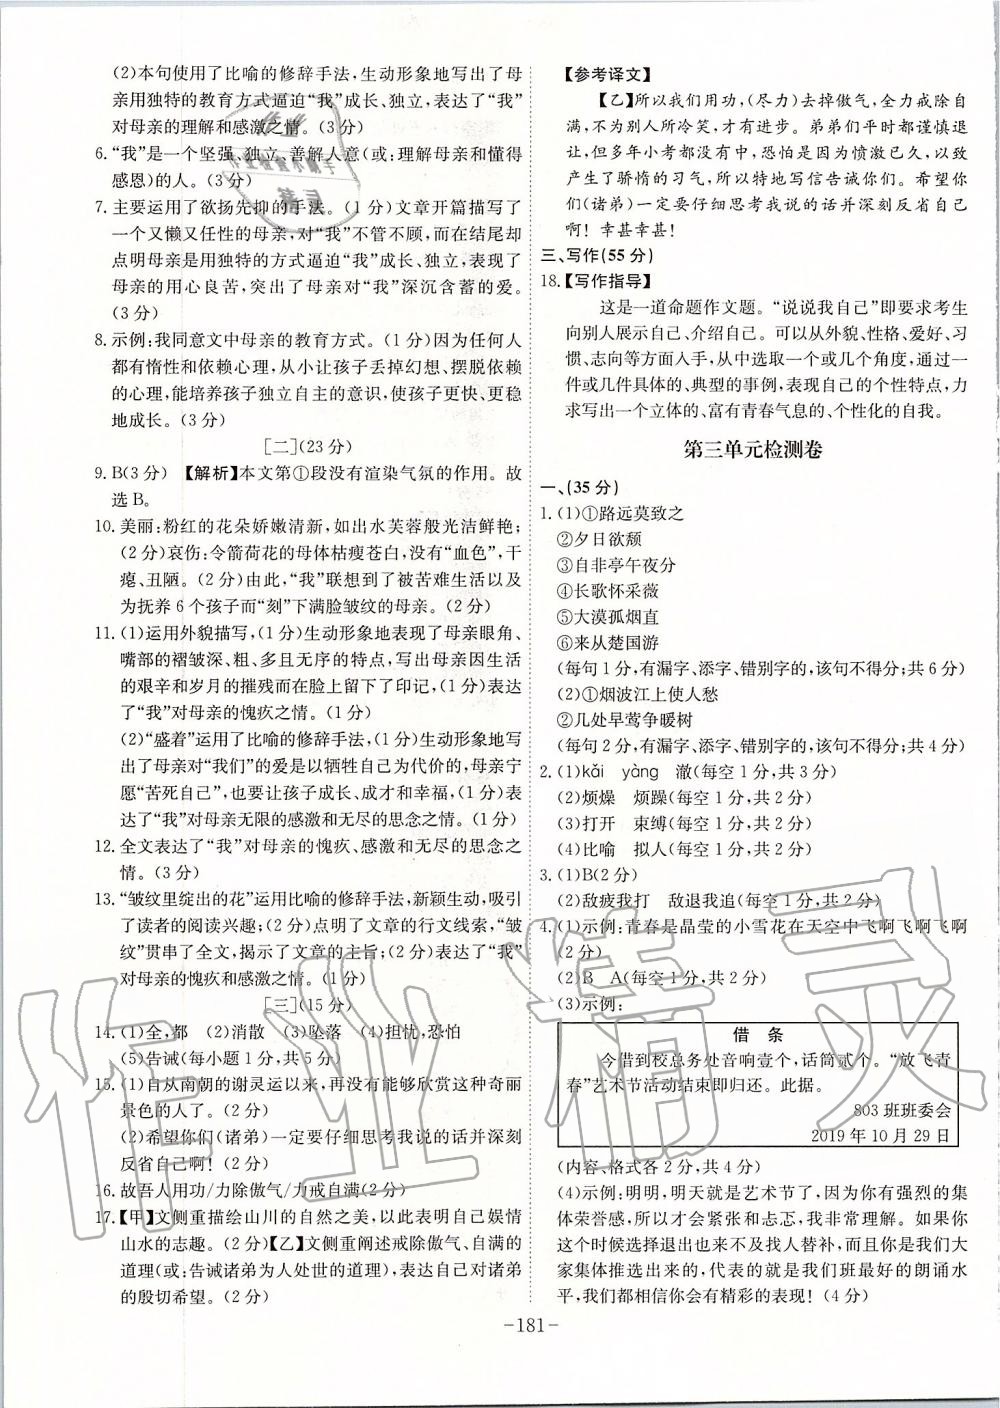 (2)本句使用了比喻的修辞手法,生动形象地写出了母
亲用独特的教育方式逼迫“我”成长、独立,表达了“我”
对母亲的理解和感激之情。(3分)
6.“我”是一个坚强、独立、善解人意(或:理解母亲和懂得
感恩)的人。(3分)
7.主要运用了欲扬先抑的手法。(1分)文章开篇描写了
一个又懒又任性的母亲,对“我”不管不顾,而在结尾却
点明母亲是用独特的方式逼迫“我”成长、独立,表现了
母亲的用心良苦,突出了母亲对“我”深沉含蓄的爱。
(3分)
8.示例:我同意文中母亲的教育方式。(1分)因为任何人
都有惰性和依赖心理,从小让孩子丢掉幻想、摆脱依赖
的心理,能培养孩子独立自主的意识,使孩子更快、更稳
地成长。(3分)
[二](23分)
9.B(3分) 【解析】本文第①段没有渲染气氛的作用。故
选B。
10.美丽:粉红的花朵娇嫩清新,如出水芙蓉般光洁鲜艳;
(2分)哀伤:令箭荷花的母体枯瘦苍白,没有“血色”,干
瘪、丑陋。(2分)由此,“我”联想到了被苦难生活以及
为抚养6个孩子而“刻”下满脸皱纹的母亲。(2分)
11.(1)运用外貌描写,(1分)生动形象地表现了母亲眼角、
嘴部的褶皱深、粗、多且无序的特点,写出母亲因生活
的艰辛和岁月的摧残而在脸上留下了印记,(1分)表达
了“我”对母亲的愧疚之情。(1分)
(2)“盛着”运用了比喻的修辞手法,(1分)生动形象地写
出了母亲对“我们”的爱是以牺牲自己为代价的,母亲宁
愿“苦死自己”,也要让孩子成长、成才和幸福,(1分)表
达了“我”对母亲无限的感激和无尽的思念之情。(1分)
12.全文表达了“我”对母亲的愧疚、感激和无尽的思念之
情。(3分)
13.“皱纹里绽出的花”运用比喻的修辞手法,新颖生动,吸
引了读者的阅读兴趣;(2分)点明了文章的行文线索,“皱
纹”贯串了全文,揭示了文章的主旨;(2分)表达了“我”
对母亲的愧疚和感激之情。(1分)
[三](15分)
14.(1)全,都 (2)消散 (3)坠落 (4)担忧,恐怕
(5)告诫(每小题1分,共5分)
15.(1)自从南朝的谢灵运以来,再没有能够欣赏这种奇丽
景色的人了。(2分)
(2)希望你们(诸弟)一定要仔细思考我说的话并深刻
反省自己啊!(2分)
16.故吾人用功/力除傲气/力戒自满(2分)
17.【甲】文侧重描绘山川的自然之美,以此表明自己娱情
山水的志趣。(2分)【乙】文侧重阐述戒除傲气、自满的
道理(或:告诫诸弟为人处世的道理),表达自己对诸弟
的殷切希望。(2分)
【参考译文】
【乙】所以我们用功,(尽力)去掉傲气,全力戒除自
满,不为别人所冷笑,才有进步。弟弟们平时都谨慎退
让,但多年小考都没有考中,恐怕是因为愤激已久,以致
产生了骄惰的习气,所以特地写信告诫你们。希望你
们(诸弟)一定要仔细思考我说的话并深刻反省自己
啊!幸甚幸甚!
三、写作(55分)
18.【写作指导】
这是一道命题作文题。“说说我自己”即要求考生
向别人展示自己、介绍自己。可以从外貌、性格、爱好、习
惯、志向等方面入手,从中选取一个或几个角度,通过一
件或几件具体的、典型的事例,表现自己的个性特点,力
求写出一个立体的、富有青春气息的、个性化的自我。
第三单元检测卷
一、(35分)
1.(1)①路远莫致之
②夕日欲颓
③自非亭午夜分
④长歌怀采薇
⑤大漠孤烟直
⑥来从楚国游
(每句1分,有漏字、添字、错别字的,该句不得分;共6分)
(2)①烟波江上使人愁
②几处早莺争暖树
(每句2分,有漏字、添字、错别字的,该句不得分;共4分)
2.(1)kǎi yàng 澈(每空1分,共3分)
(2)烦燥 烦躁(每空1分,共2分)
(3)打开 束缚(每空1分,共2分)
(4)比喻 拟人(每空1分,共2分)
3.(1)B(2分)
(2)敌疲我打 敌退我追(每空1分,共2分)
4.(1)示例:青春是晶莹的小雪花在天空中飞啊飞啊飞啊
(2分)
(2)B A(每空1分,共2分)
(3)示例:
借 条
今借到校总务处音响壹个,话筒贰个。“放飞青
春”艺术节活动结束即归还。此据。
803班班委会
2019年10月29日
(内容、格式各2分,共4分)
(4)示例:明明,明天就是艺术节了,因为你有强烈的集
体荣誉感,所以才会紧张和忐忑,我非常理解。如果你
这个时候选择退出也来不及找人替补,而且你是我们大
家集体推选出来的,代表的就是我们班最好的朗诵水
平,我们都相信你会有精彩的表现!(4分)
-181-
作业精灵